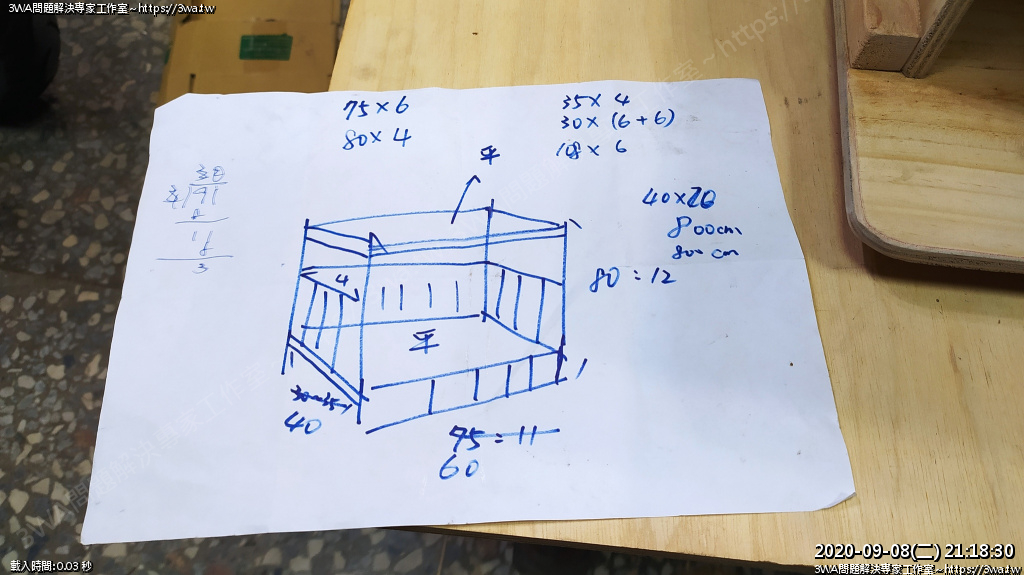 3WA問題解決專家工作室~https://3wa.tw
75×6
80×4
35×4
30×(6+6)
108×6
平
40×20
800cm
800cm
80:12
4
平
30~35
40
75:11
60
載入時間:0.03 秒
2020-09-08(二) 21:18:30
3WA問題解決專家工作室~https://3wa.tw